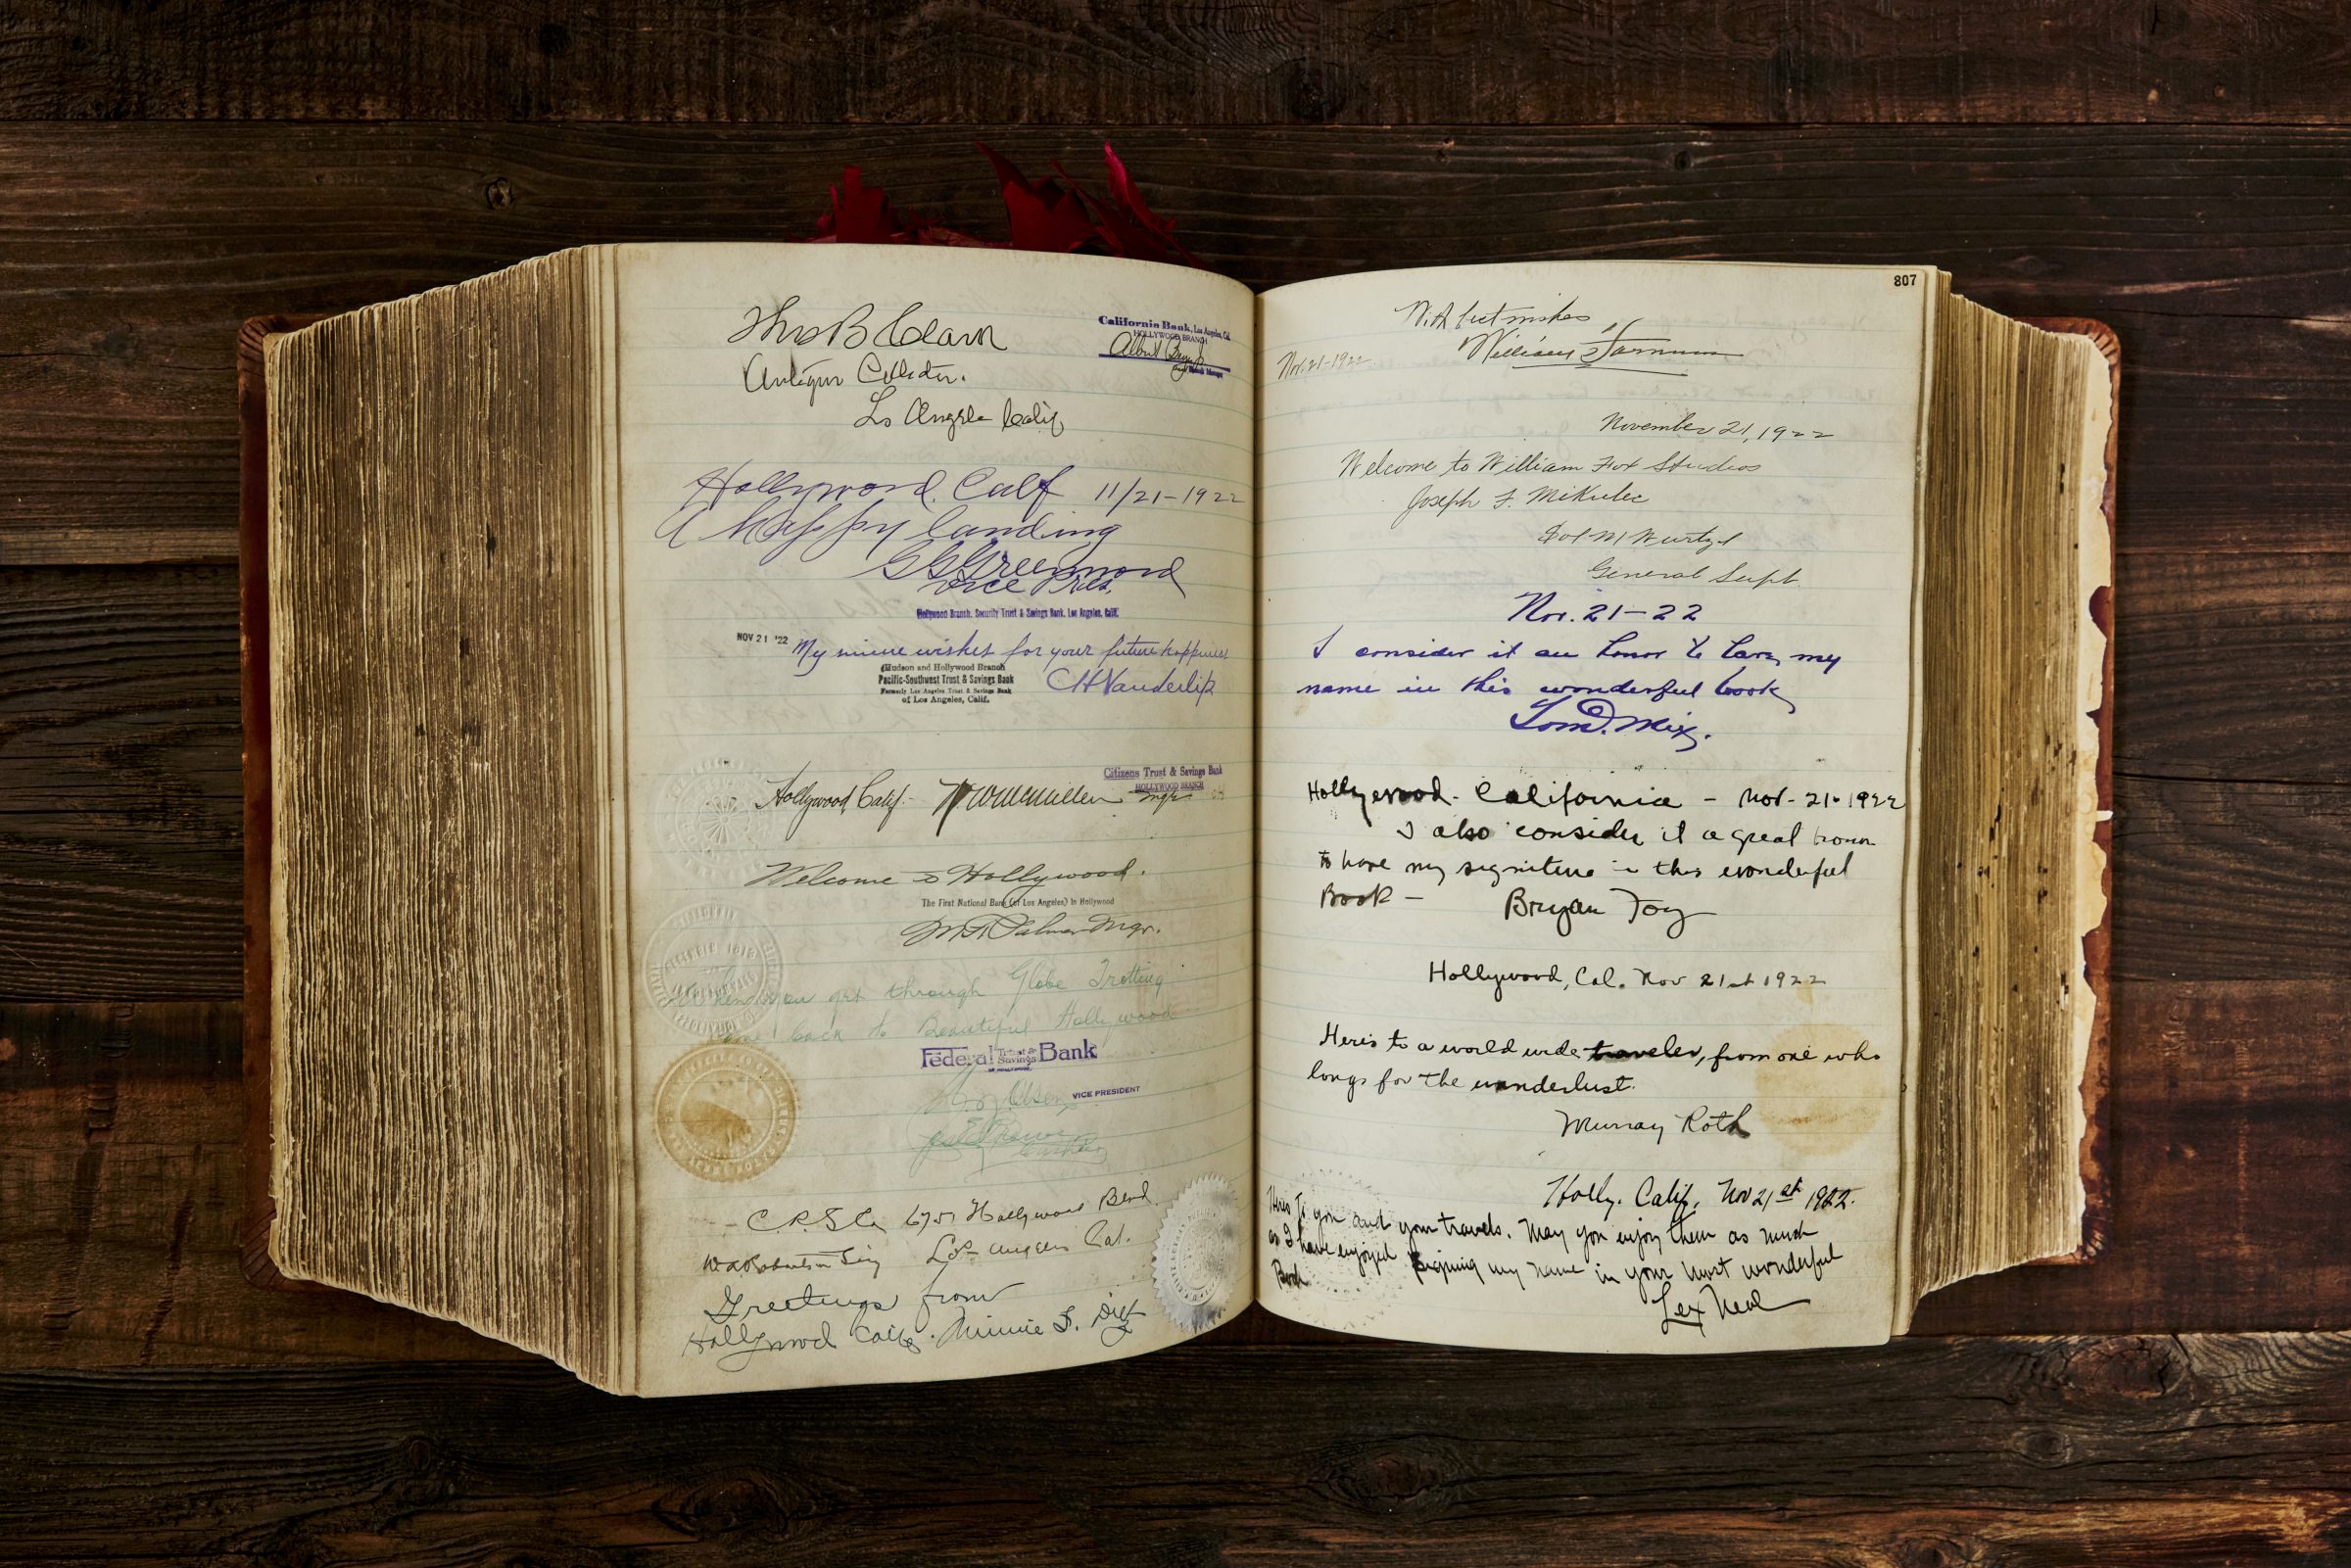 Thos B Clark
Antique Collector.
Los Angeles Calif
California Bank, Los Angeles, Cal.
HOLLYWOOD BRANCH
Albert
Hollywood. Calf 11/21-1922
A happy landing
G G Greenwood
Vice Pres.
Hollywood Branch, Security Trust & Savings Bank, Los Angeles, Calif.
NOV 21 '22
My wishes for your future happiness
Hudson and Hollywood Branch
Pacific-Southwest Trust & Savings Bank
Formerly Los Angeles Trust & Savings Bank
of Los Angeles, Calif.
C H Vanderlip
Citizens Trust & Savings Bank
HOLLYWOOD BRANCH
Hollywood, Calif. - McMillen mgr
Welcome to Hollywood.
The First National Bank (of Los Angeles) in Hollywood
Palmer Mgr.
When you get through Globe Trotting
Come back to Beautiful Hollywood
Federal Trust & Savings Bank
OF HOLLYWOOD
Olsen VICE PRESIDENT
6751 Hollywood Blvd
Los Angeles Cal.
Greetings from
Hollywood Calif. Minnie
807
With best wishes
William Farnum
Nov. 21-1922
November 21, 1922
Welcome to William Fox Studios
Joseph F. Mikulec
Sol M Wurtzel
General Supt.
Nov. 21-22
I consider it an honor to have my
name in this wonderful book
Tom Mix.
Hollywood - California - Nov - 21-1922
I also consider it a great honor
to have my signature in this wonderful
Book - Bryan Foy
Hollywood, Cal. Nov 21st 1922
Heres to a world wide traveler, from one who
longs for the wanderlust.
Murray Roth
Holly. Calif, Nov 21st 1922.
Heres to you and your travels. May you enjoy them as much
as I have enjoyed signing my name in your most wonderful
Book
Lex Neal